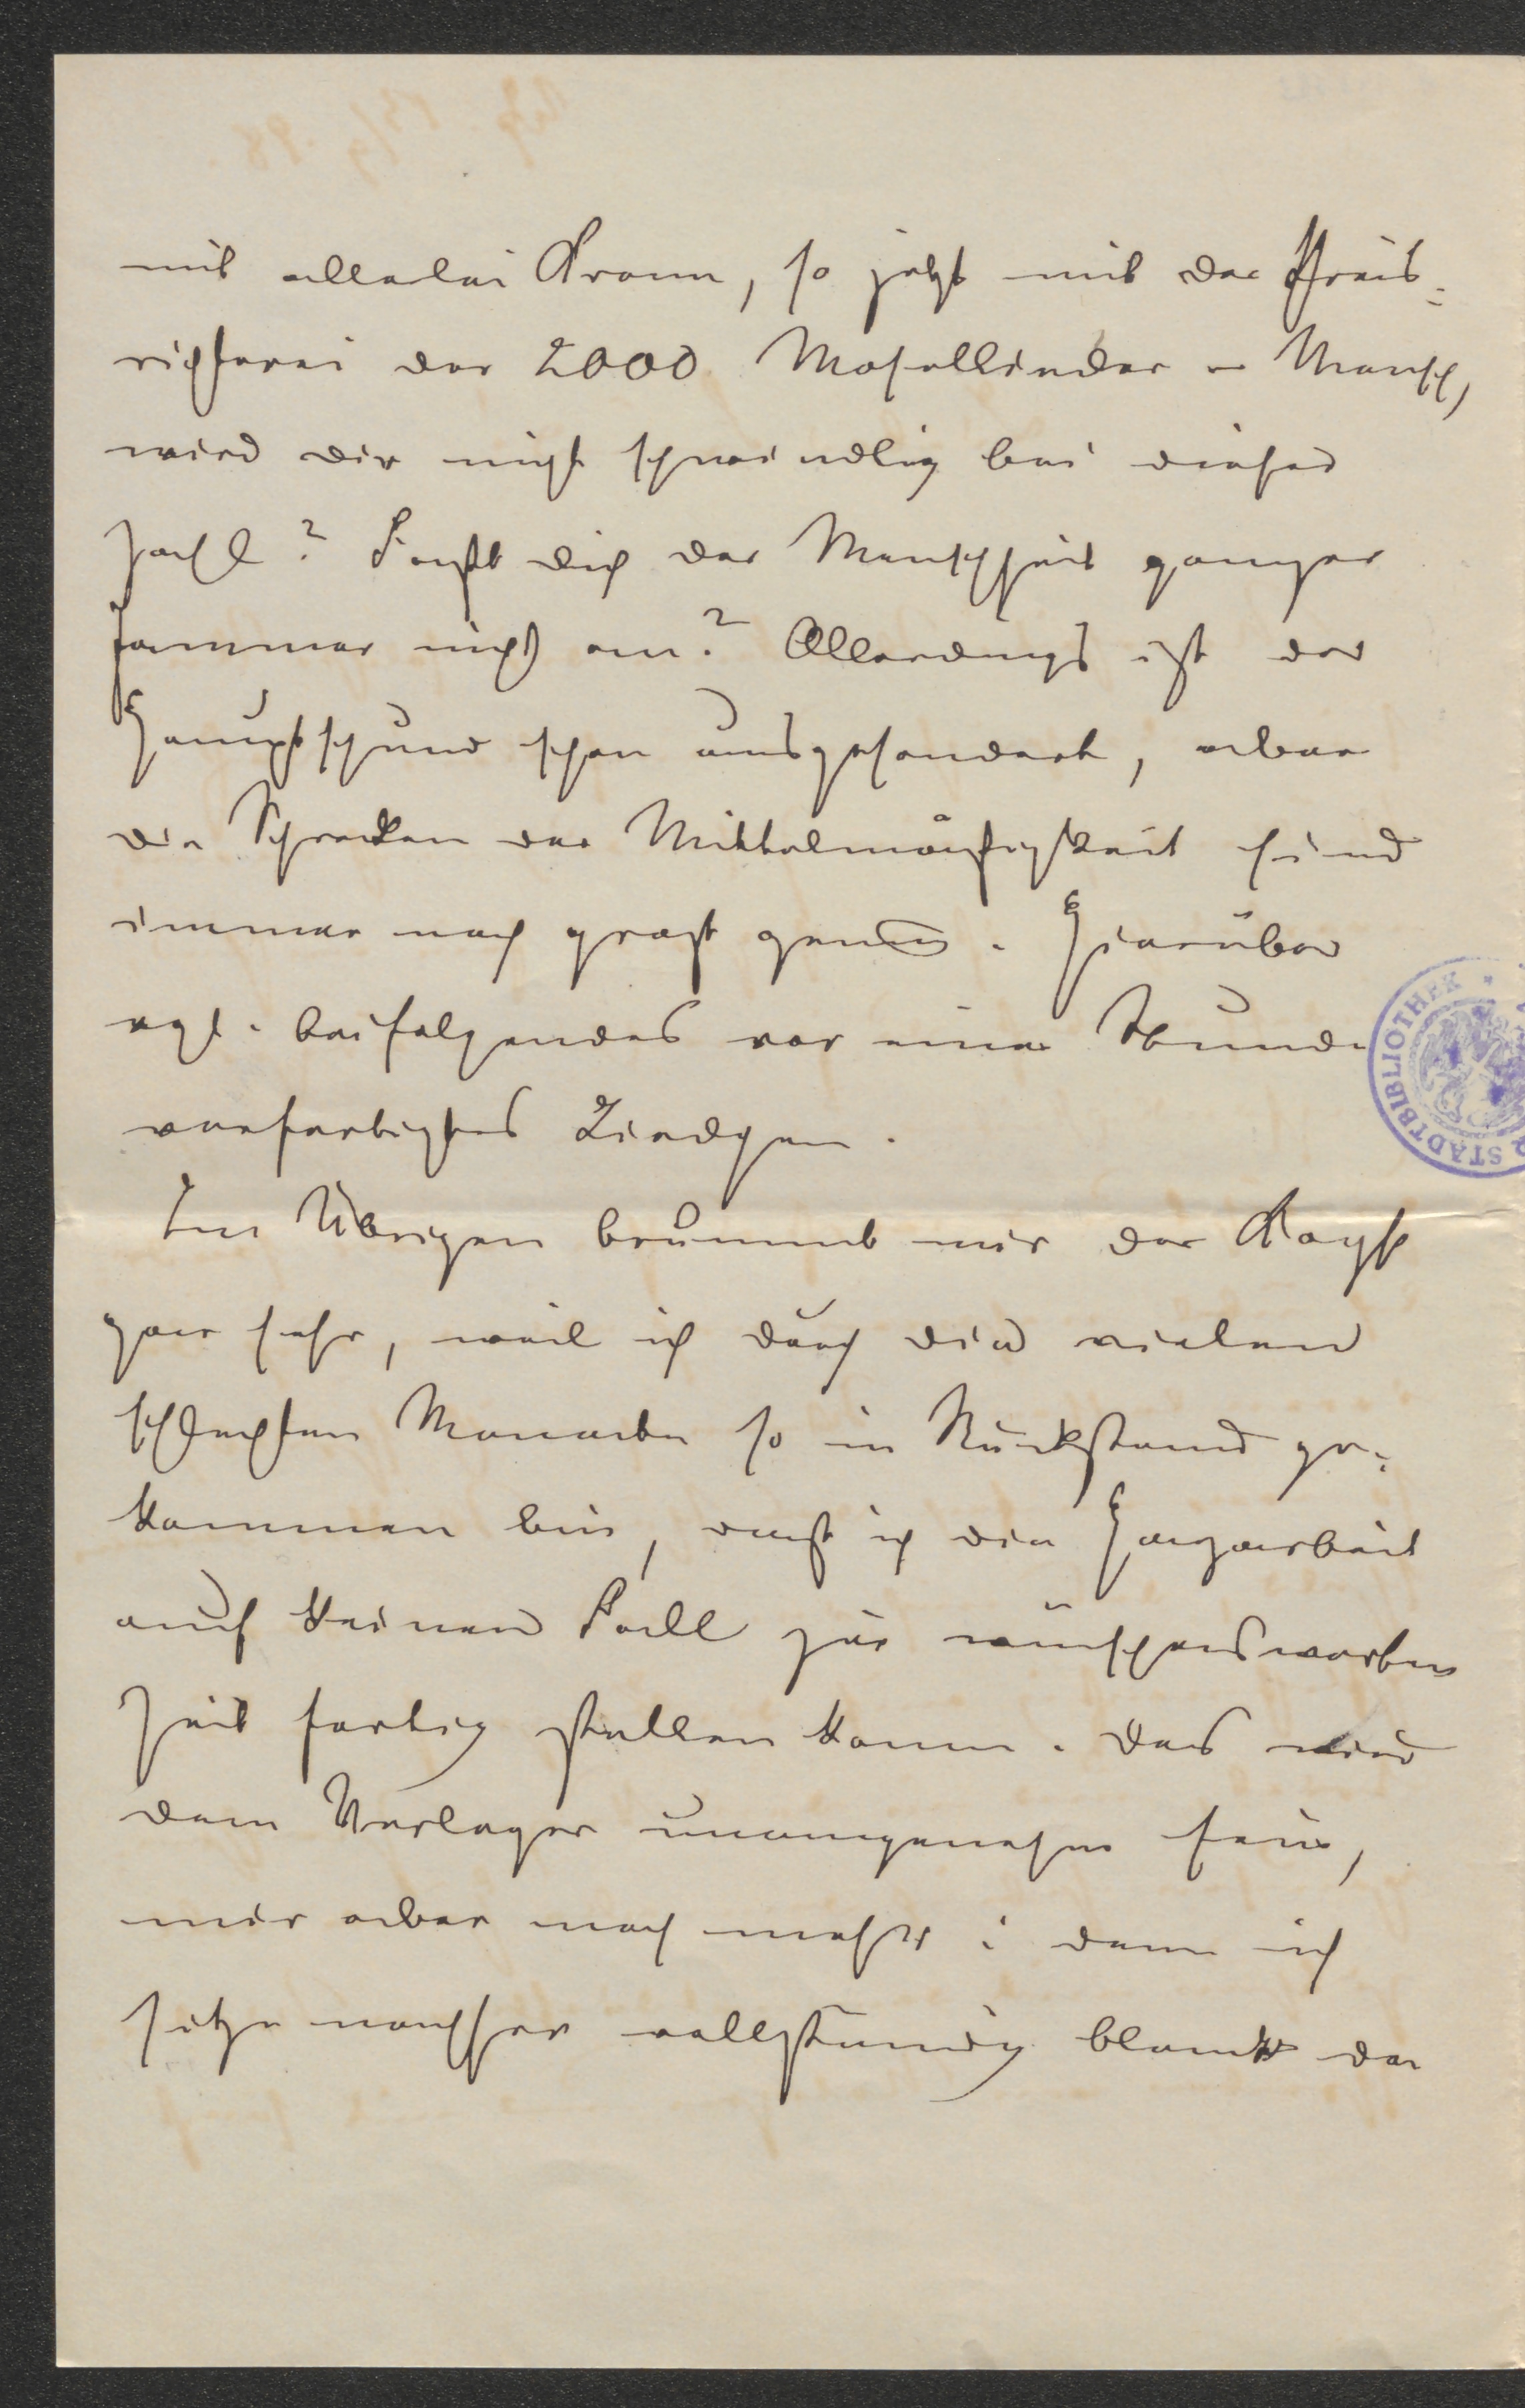 mit allerlei Kram, so jetzt mit der Preis-
richterei der 2000 Mosellieder – Mensch,
wird dir nicht schwindlig bei dieser
Zahl? Faßt dich der Menschheit ganzer
Jammer nicht an? Allerdings ist der
Hauptschund schon ausgesondert, aber
die Schrecken der Mittelmäßigkeit sind
immer noch groß genug. Hierüber
vgl. beifolgendes vor einer Stunde
verfertigtes Liedchen.
Im Übrigen brummt mir der Kopf
gar sehr, weil ich durch die vielen
schlechten Monate so in Rückstand ge-
kommen bin, daß ich die Harzarbeit
auf keinen Fall zur wünschenswerten
Zeit fertig stellen kann. Das wird
dem Verleger unangenehm sein,
mir aber noch mehr; denn ich
sitze nachher vollständig blank da
STADTBIBLIOTHEK